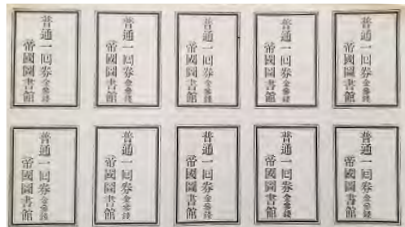 普通一回券金參錢
帝國圖書館
普通一回券金參錢
帝國圖書館
普通一回券金參錢
帝國圖書館
普通一回券金參錢
帝國圖書館
普通一回券金參錢
帝國圖書館
普通一回券金參錢
帝國圖書館
普通一回券金參錢
帝國圖書館
普通一回券金參錢
帝國圖書館
普通一回券金參錢
帝國圖書館
普通一回券金參錢
帝國圖書館